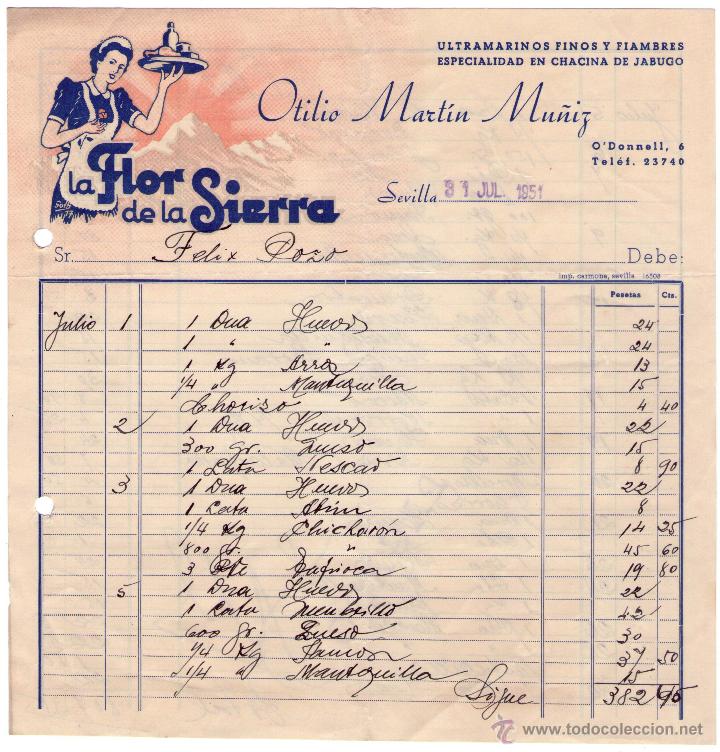 ULTRAMARINOS FINOS Y FIAMBRES
ESPECIALIDAD EN CHACINA DE JABUGO
Otilio Martín Muñiz
O'Donnell, 6
Teléf. 23740
La Flor
de la Sierra
Sevilla 31 JUL. 1951
Sr. Felix Pozo Debe:
Imp. carmona, sevilla 16508
Pesetas Cts.
Julio 1 1 Dna Huevos 24
1 " " 24
1 Kg Arroz 13
1/4 " Mantequilla 15
Choriso 4 40
2 1 Dna Huevos 22
300 gr. Queso 15
1 Lata Pescao 8 90
3 1 Dna Huevos 22
1 Lata Atún 8
1/4 Kg Chicharón 14 25
800 gr. " 45 60
3 Pte Tapioca 19 80
5 1 Dna Huevos 22
1 Lata membrillo 42
600 gr. Queso 30
1/4 Kg Jamon 37 50
1/4 " Mantequilla 15
Sigue 382 95
www.todocoleccion.net